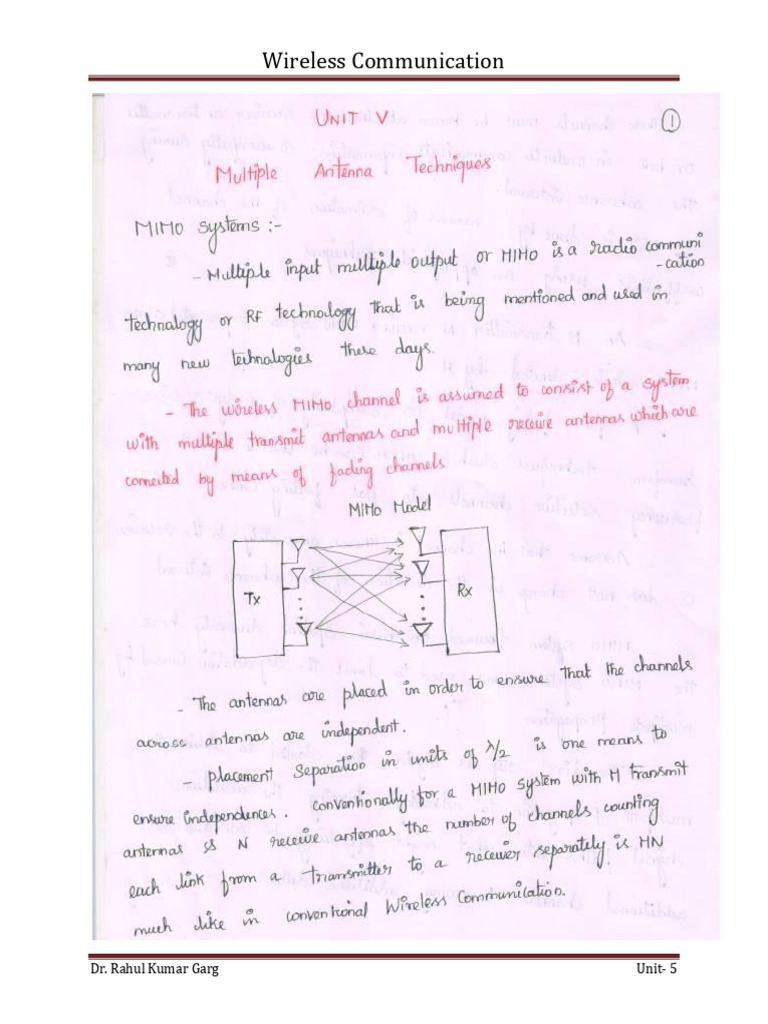 Wireless Communication
UNIT V
1
Multiple Antenna Techniques
MIMO systems :-
- Multiple input multiple output or MIMO is a radio communi
-cation
technology or RF technology that is being mentioned and used in
many new technologies these days.
- The wireless MIMO channel is assumed to consist of a system
with multiple transmit antennas and multiple receive antennas which are
connected by means of fading channels
MIMO Model
Tx
Rx
- The antennas are placed in order to ensure that the channels
across antennas are independent.
- placement Separation in units of λ/2 is one means to
ensure independences. conventionally for a MIMO system with M transmit
antennas & N receive antennas the number of channels counting
each link from a transmitter to a receiver separately is MN
much like in conventional Wireless Communication.
Dr. Rahul Kumar Garg
Unit- 5